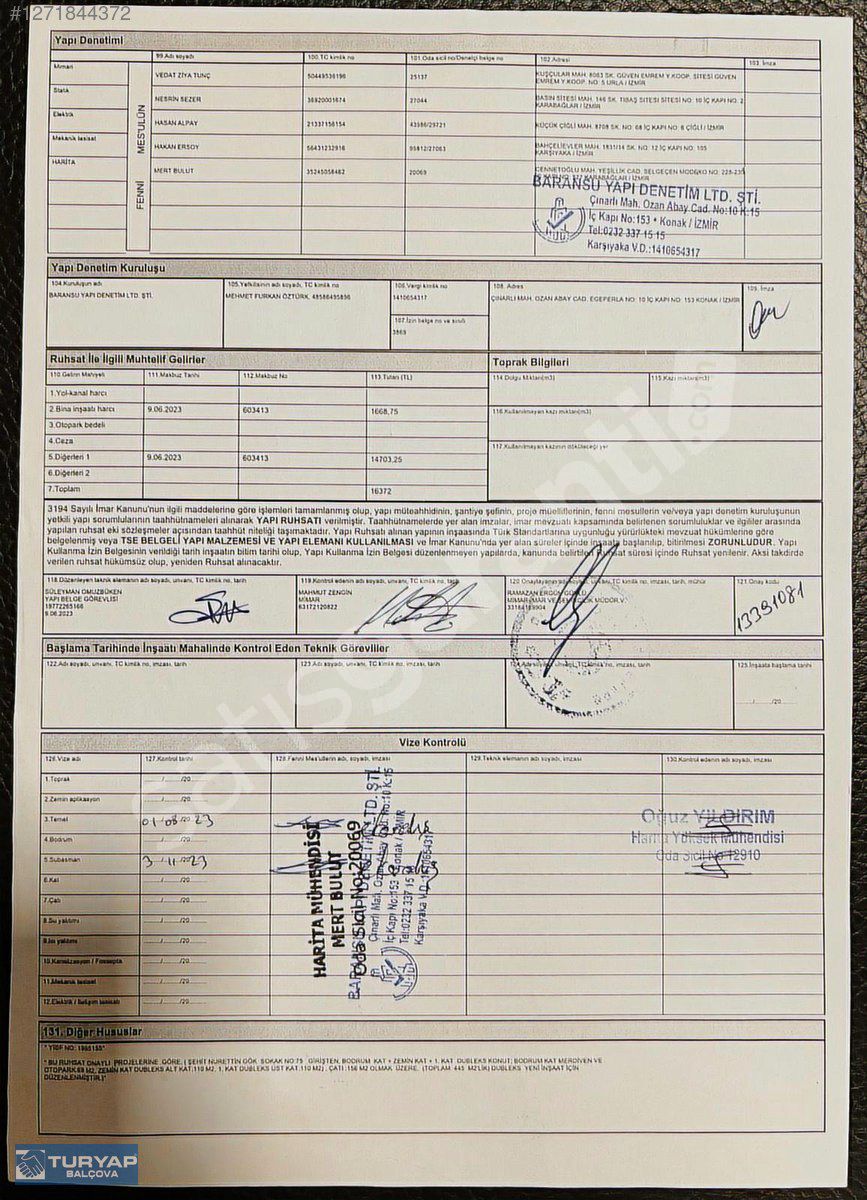 #1271844372
Yapı Denetimi
99.Adı soyadı 100.TC kimlik no 101.Oda sicil no/Denetçi belge no 102.Adresi 103. İmza
FENNİ MES'ULÜN
Mimari VEDAT ZİYA TUNÇ 50449536196 25137 KUŞÇULAR MAH. 8063 SK. GÜVEN EMREM Y.KOOP. SİTESİ GÜVEN
EMREM Y.KOOP. NO: 5 URLA / İZMİR
Statik NESRİN SEZER 38920001674 27044 BASIN SİTESİ MAH. 146 SK. TIBAŞ SİTESİ SİTESİ NO: 10 İÇ KAPI NO: 2
KARABAĞLAR / İZMİR
Elektrik HASAN ALPAY 21337156154 43986/29721 KÜÇÜK ÇİĞLİ MAH. 8708 SK. NO: 68 İÇ KAPI NO: 6 ÇİĞLİ / İZMİR
Mekanik tesisat HAKAN ERSOY 56431232916 95812/27063 BAHÇELİEVLER MAH. 1831/14 SK. NO: 12 İÇ KAPI NO: 105
KARŞIYAKA / İZMİR
HARİTA MERT BULUT 35245058482 20069 CENNETOĞLU MAH. YEŞİLLİK CAD. SELGEÇEN MODEKO NO: 228-230
KARABAĞLAR / İZMİR
BARANSU YAPI DENETİM LTD. ŞTİ.
Çınarlı Mah. Ozan Abay Cad. No:10 K:15
İç Kapı No:153 • Konak / İZMİR
Tel:0232 337 15 15
Karşıyaka V.D.:1410654317
Yapı Denetim Kuruluşu
104.Kuruluşun adı 105.Yetkilisinin adı soyadı, TC kimlik no 106.Vergi kimlik no 108. Adres 109. İmza
BARANSU YAPI DENETİM LTD. ŞTİ. MEHMET FURKAN ÖZTÜRK, 48586495896 1410654317 ÇINARLI MAH. OZAN ABAY CAD. EGEPERLA NO: 10 İÇ KAPI NO: 153 KONAK / İZMİR
107.İzin belge no ve sınıfı
3869
Ruhsat İle İlgili Muhtelif Gelirler
110.Gelirin Mahiyeti 111.Makbuz Tarihi 112.Makbuz No 113.Tutarı (TL)
1.Yol-kanal harcı
2.Bina inşaatı harcı 9.06.2023 603413 1668,75
3.Otopark bedeli
4.Ceza
5.Diğerleri 1 9.06.2023 603413 14703,25
6.Diğerleri 2
7.Toplam 16372
Toprak Bilgileri
114.Dolgu Miktarı(m3) 115.Kazı miktarı(m3)
116.Kullanılmayan kazı miktarı(m3)
117.Kullanılmayan kazının döküleceği yer
3194 Sayılı İmar Kanunu'nun ilgili maddelerine göre işlemleri tamamlanmış olup, yapı müteahhidinin, şantiye şefinin, proje müelliflerinin, fenni mesullerin ve/veya yapı denetim kuruluşunun
yetkili yapı sorumlularının taahhütnameleri alınarak YAPI RUHSATI verilmiştir. Taahhütnamelerde yer alan imzalar, imar mevzuatı kapsamında belirlenen sorumluluklar ve ilgililer arasında
yapılan ruhsat eki sözleşmeler açısından taahhüt niteliği taşımaktadır. Yapı Ruhsatı alınan yapının inşaasında Türk Standartlarına uygunluğu yürürlükteki mevzuat hükümlerine göre
belgelenmiş veya TSE BELGELİ YAPI MALZEMESİ VE YAPI ELEMANI KULLANILMASI ve İmar Kanunu'nda yer alan süreler içinde inşaata başlanılıp, bitirilmesi ZORUNLUDUR. Yapı
Kullanma İzin Belgesinin verildiği tarih inşaatın bitim tarihi olup, Yapı Kullanma İzin Belgesi düzenlenmeyen yapılarda, kanunda belirtilen Ruhsat süresi içinde Ruhsat yenilenir. Aksi takdirde
verilen ruhsat hükümsüz olup, yeniden Ruhsat alınacaktır.
118.Düzenleyen teknik elemanın adı soyadı, unvanı, TC kimlik no, tarih 119.Kontrol edenin adı soyadı, unvanı, TC kimlik no, tarih 120.Onaylayanın adı soyadı, unvanı, TC kimlik no, imzası, tarih, mühür 121.Onay kodu
SÜLEYMAN OMUZBÜKEN
YAPI BELGE GÖREVLİSİ
19772265166
9.06.2023
MAHMUT ZENGİN
MİMAR
63172120822
RAMAZAN ERGÜN
13391081
Başlama Tarihinde İnşaatı Mahalinde Kontrol Eden Teknik Görevliler
122.Adı soyadı, unvanı, TC kimlik no, imzası, tarih 123.Adı soyadı, unvanı, TC kimlik no, imzası, tarih 124.Adı soyadı, unvanı, TC kimlik no, imzası, tarih 125.İnşaata başlama tarihi
...../...../20.....
Vize Kontrolü
126.Vize adı 127.Kontrol tarihi 128.Fenni Mes'ullerin adı, soyadı, imzası 129.Teknik elemanın adı, soyadı, imzası 130.Kontrol edenin adı, soyadı, imzası
1.Toprak ...../...../20.....
2.Zemin aplikasyon ...../...../20.....
3.Temel 01/08/2023
4.Bodrum
5.Subasman 3/11/2023
6.Kat ...../...../20.....
7.Çatı ...../...../20.....
8.Su yalıtımı ...../...../20.....
9.Isı yalıtımı ...../...../20.....
10.Kanalizasyon / Fosseptik ...../...../20.....
11.Mekanik tesisat ...../...../20.....
12.Elektrik / İletişim tesisatı ...../...../20.....
HARİTA MÜHENDİSİ
MERT BULUT
Oda Sicil No:20069
BARANSU YAPI DENETİM LTD. ŞTİ.
Çınarlı Mah. Ozan Abay Cad. No:10 K:15
İç Kapı No:153 • Konak / İZMİR
Tel:0232 337 15 15
Karşıyaka V.D.:1410654317
Oğuz YILDIRIM
Harita Yüksek Mühendisi
Oda Sicil No 12910
131. Diğer Hususlar
* YİBF NO:
* BU RUHSAT ONAYLI PROJELERİNE GÖRE; ( ŞEHİT NURETTİN GÖK SOKAK NO:75 GİRİŞTEN, BODRUM KAT + ZEMİN KAT + 1. KAT DUBLEKS KONUT; BODRUM KAT MERDİVEN VE
OTOPARK:69 M2, ZEMİN KAT DUBLEKS ALT KAT:110 M2, 1. KAT DUBLEKS ÜST KAT:110 M2) ; ÇATI :156 M2 OLMAK ÜZERE, (TOPLAM 445 M2'LİK) DUBLEKS YENİ İNŞAAT İÇİN
DÜZENLENMİŞTİR.)*
satisgaranti.com
TURYAP
BALÇOVA